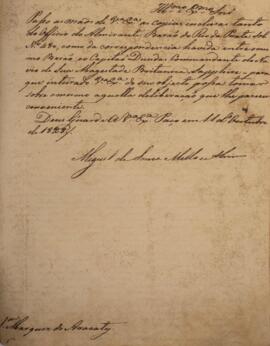 Illmo. e Exmo. Snr.
Passo as mãos de V. Exa. as copias inclusas tanto
do Officio do Almirante Barão do Rio da Prata sob
No. 48, como da correspondencia havida entre o mes
mo Barão e o Capitão Dundas Commandante do Na
vio de Sua Magestade Britanica Sapphire, para
que inteirado V. Exa. do seu objecto possa tomar
sobre o mesmo aquella deliberação que lhe parecer
conveniente.
Deos Guarde a V. Exa. Paço em 11 de Outubro
de 1828.
Miguel de Souza Mello e Alvim
Marquez de Aracaty